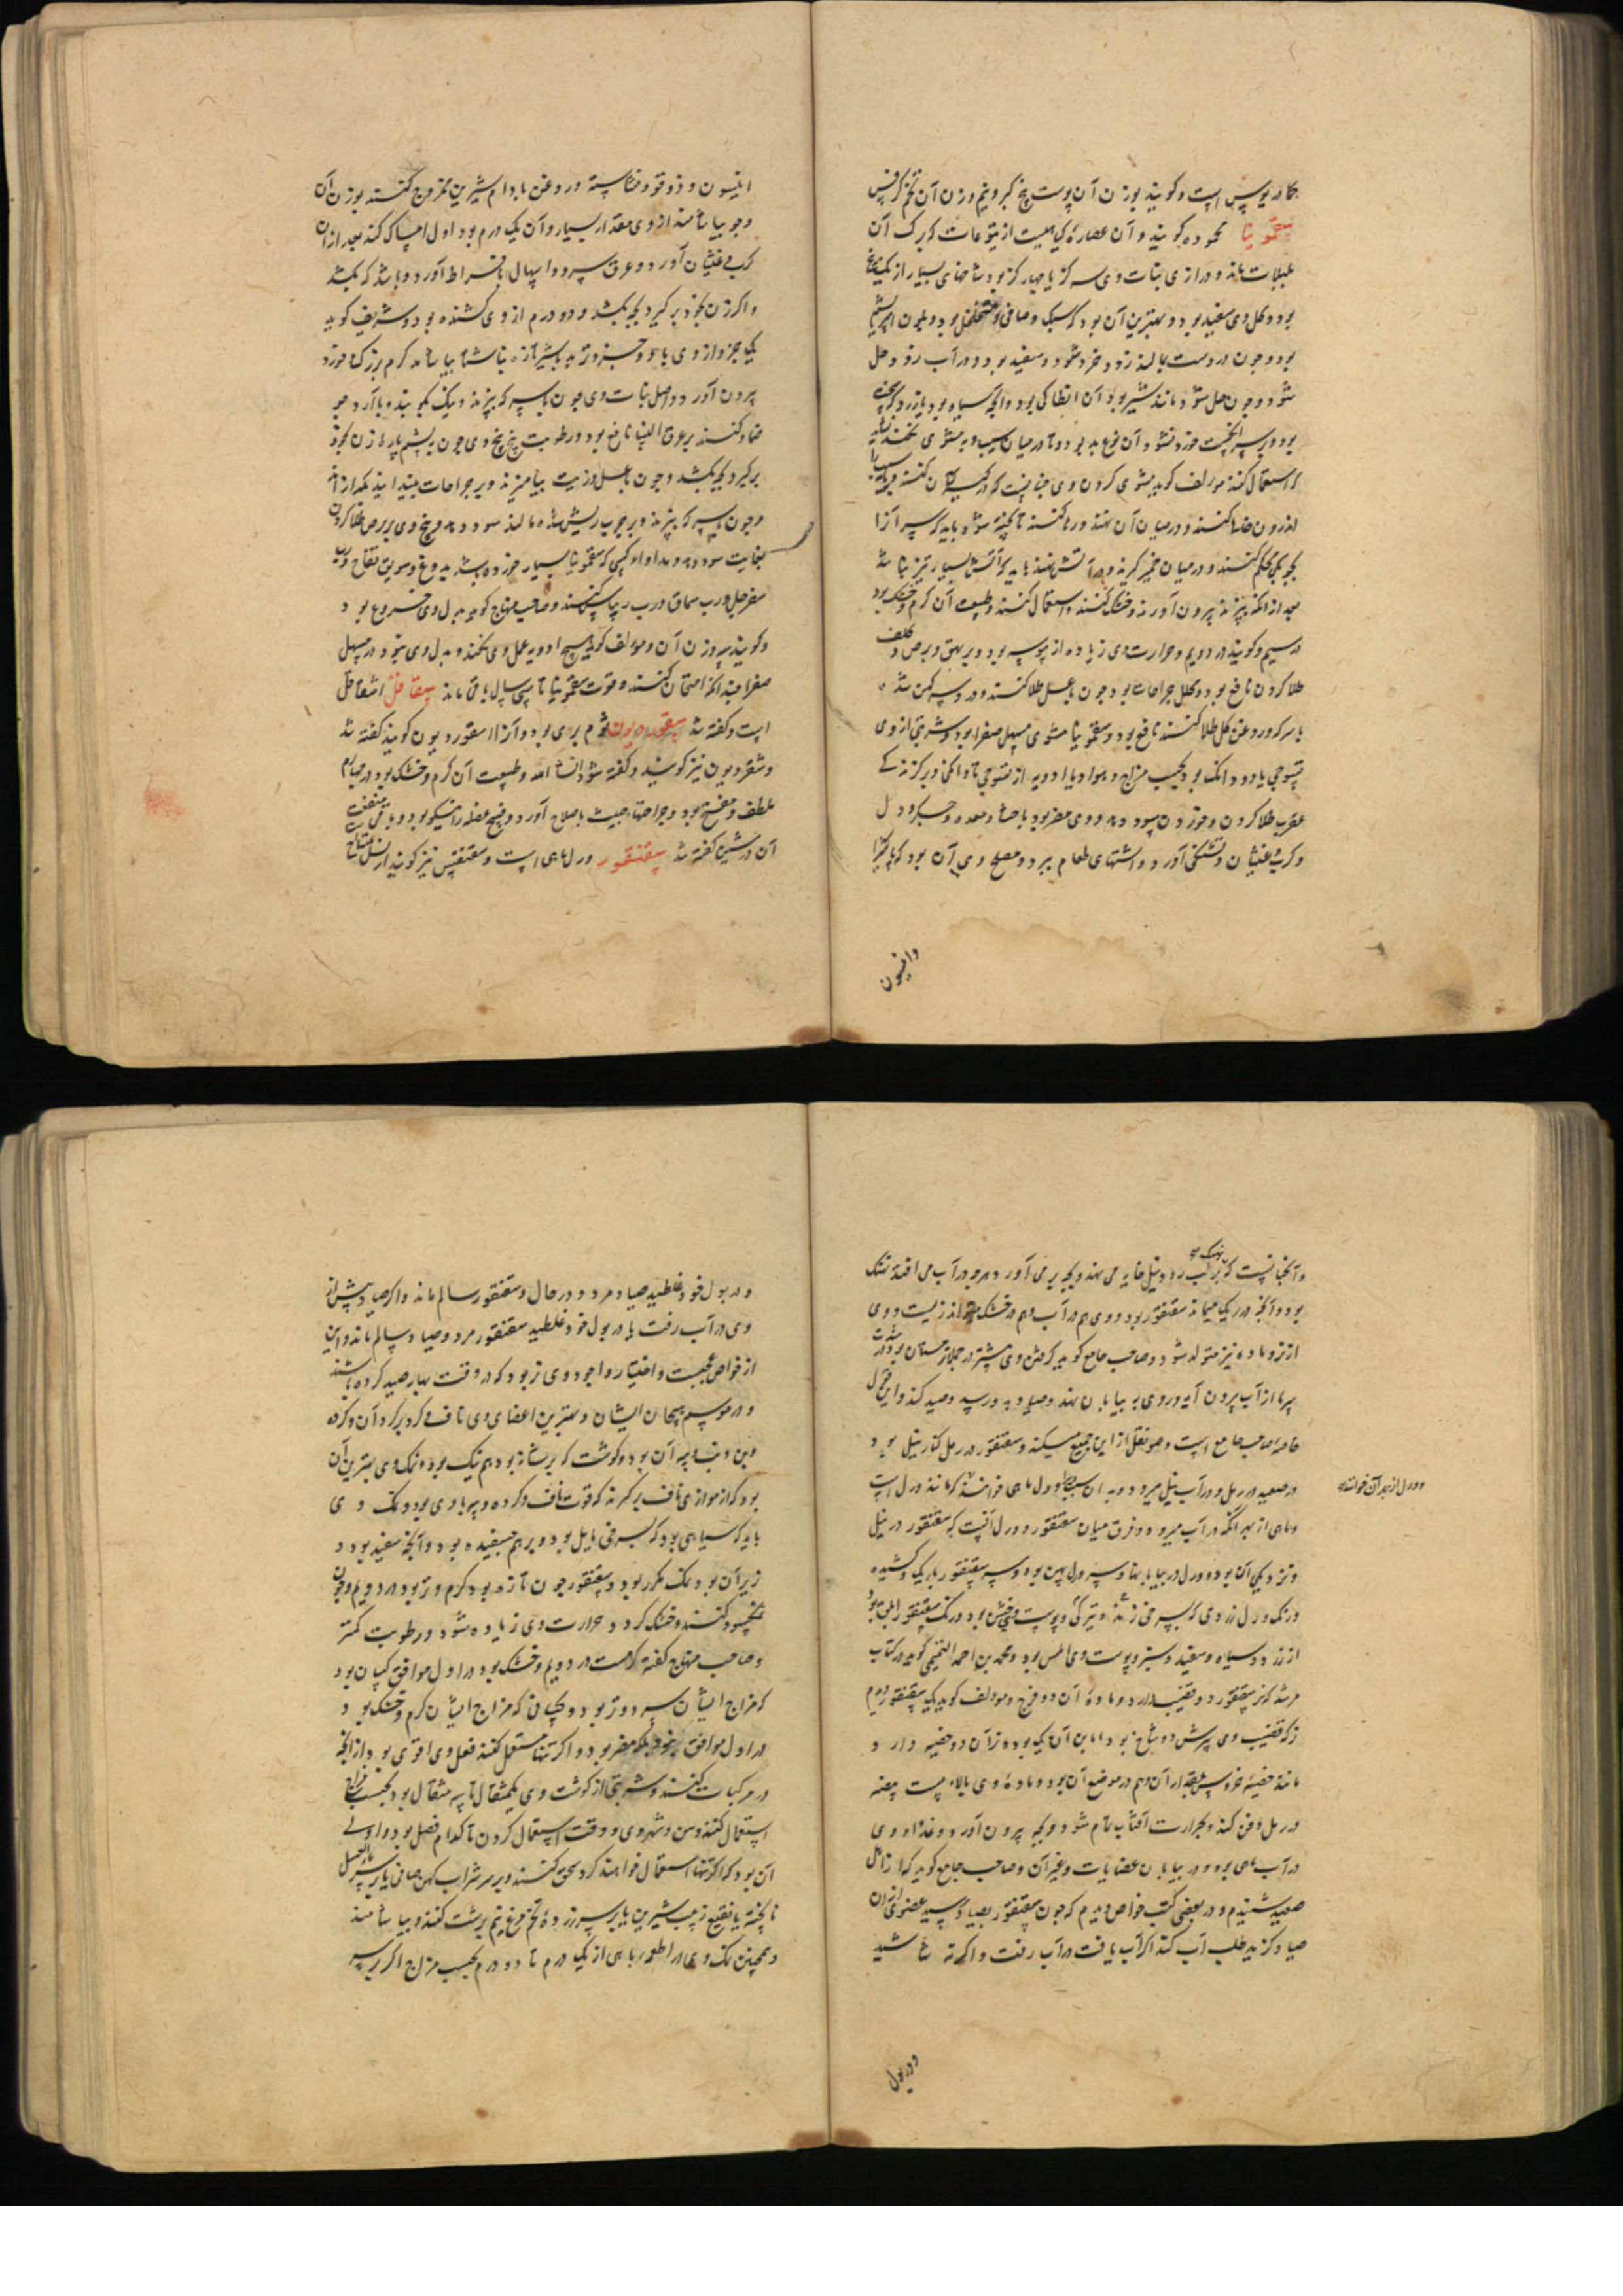 کمادریوس است و کویند بوزن آن پوست بیخ کبر و نیم وزن آن تخم کرفس
سقمونیا محموده کویند و آن عصاره کیاهیست از یتوعات که برک آن
بلبلاب ماند و درازی نبات وی سه کز یا چهار کز بود شاخهای بسیار از یک بیخ
بود و کل وی سفید بود و بهترین آن بود که سبک و صافی و متخلخل بود و بلون
بود و چون در دست بمالند زود خرد شود و سفید بود و در آب زود حل
شود و چون حل شود مانند شیر بود آن انطاکی بود و آنچه سیاه بود یا زرد
بود و بسر انکشت خورد نشود آن نوع بد بود و تا در میان سیب و به مشوی نکنند نشاید
که استعمال کنند مولف کوید مشوی کردن وی چنانست که در کیسه کنند
اندرون خالی کنند و در میان آن نهند و رها کنند تا پخته شود و باید که سر آنرا
بچوبکی محکم کنند و در میان خمیر کیرند و در آتش نهند باید که آتش بسیار تیز نباشد
بعد از انکه بپزند بیرون آورند و خشک کنند و استعمال کنند و طبیعت آن کرم و خشک بود
در سیم و کویند در دویم و حرارت وی زیاده از یبوسه بود و بر بهق و برص و کلف
طلا کردن نافع بود و کل جراحات بود چون با عسل طلا کنند و درد سر کهن شده
با سرکه و روغن کل طلا کنند نافع بود و سقمونیا مشوی مسهل صفرا بود و شربتی از وی
تسوجی یا دو دانک بود بحسب مزاج و هوا و یا ادویه از تسوجی تا دانکی و بر کزندکی
عقرب طلا کردن و خوردن سود دهد و وی مضر بود باحشا و معده و جکر و دل
و کرب و غثیان و تشنکی آورد و اشتهای طعام ببرد و مصلح وی آن بود که با کتیرا
وانیسون
انیسون و دوقو و نشاسته و روغن بادام شیرین ممزوج کنند بوزن آن
و چو بیاشامند از وی مقدار بسیار و آن یک درم بود اول امساک کند بعد از آن
کرب و غثیان آورد و عرق سرد و اسهال بافراط آورد و باشد که بکشد
و اکر زن بخود برکیرد بچه بکشد و دو درم از وی کشنده بود و شریف کوید
یک جزو از وی با دو جزو تربد با شیر تازه ناشتا بیاشامد کرم بزرک و خورد
بیرون آورد و اصل نبات وی چون با سرکه بپزند و نیک بکوبند و با آرد جو
ضماد کنند بر عرق النسا نافع بود و رطوبت بیخ وی چون بپشم پاره زن بخود
برکیرد بچه بکشد و چون با عسل و زیت بیامیزند و بر جراحات بیندایند بکدازاند
و چون با سرکه بپزند و بر جرب ریش شده مالند سود دهد و بیخ وی بر برص طلا کردن
بغایت سود دهد و مداوای کسی که سقمونیا بسیار خورده باشد بدوغ و سویق تفاح و رب
سفرجل و رب سماق و رب ریباس کنند و صاحب منهاج کوید بدل وی خروع بود
و کویند بوزن آن و مولف کوید هیچ ادویه عمل وی نکند و بدل وی نبود در مسهل
صفرا چندانکه امتحان کنند و قوت سقمونیا تا سی سال باقی ماند سقاقل اشقاقل
است و کفته شد سقوردیون ثوم بری بود و آنرا اسقوردیون کویند کفته شد
و شقردیون نیز کویند و کفته شود ان شاء الله و طبیعت آن کرم و خشک بود در چهارم
ملطف و مفتح بود و جراحتهاء خبیث باصلاح آورد و فسخ عضله را نیکو بود و باقی منفعت
آن در شین کفته شد سقنقور ورل ماهی است و سقنقس نیز کویند از نسل تمساح
و آنچنانست که نهنک بر لب رود نیل خایه می نهد و بچه بر می آورد هرچه در آب می افتد نهنک
بود و آنچه در ریک میماند سقنقور بود و وی هم در آب و هم در خشکی تواند زیست و وی
از نر و ماده نیز متولد شود و صاحب جامع کوید کرفتن وی بیشتر در چلهء زمستان بود در شدت
سرما از آب بیرون آید و روی به بیابان نهد و صیاد به وی رسد و صید کند و این قول
خاصه صاحب جامع است و مولف نقل از این جمیع میکند و سقنقور در رمل کنار نیل بود
در صعید در رمل و در آب نیل میرود و بدان سبب او را ورل ماهی خوانند که مانند ورل است
و ماهی از بهر آنکه در آب میرود و فرق میان سقنقور و ورل آنست که سقنقور در نیل
ورل از بهر آن خوانند
و نزدیکی آن بود و ورل در بیابانها و سر ورل پهن بود و سر سقنقور باریک و کشیده
و رنک ورل زردی که بسرخی زند و تیرکی و پوست وی خشن بود و رنک سقنقور ابلق بود
از زرد و سیاه و سفید و سبز و پوست وی املس بود و محمد بن احمد التمیمی کوید در کتاب
مرشد که نر سقنقور دو قضیب دارد و ماده آن دو فرج و مولف کوید یک سقنقور دیدم
نر که قضیب وی سرش دو شاخ بود اما بن آن یکی بود و نر آن دو خصیه دارد
مانند خصیه خروس بمقدار آن و هم در موضع آن بود و ماده وی بالای بیست بیضه
در رمل دفن کند و بحرارت آفتاب تمام شود و بچه بیرون آورد و غذای وی
در آب ماهی بود و در بیابان عضایات و غیر آن و صاحب جامع کوید که از اهل
صعید شنیدم و در بعضی کتب خواص دیدم که چون سقنقور بصیاد رسید عضوی از آن
صیاد کزید طلب آب کند اکر آب یافت در آب رفت و اکر نه شاشید
ودربول
و در بول خود غلطید صیاد مرد در حال و سقنقور سالم ماند و اکر صیاد پیش از
وی در آب رفت یا در بول خود غلطید سقنقور مرد و صیاد سالم ماند و این
از خواص عجیبست و اختیار و اجود وی نر بود که در وقت بهار صید کرده باشند
و در موسم هیجان ایشان و بهترین اعضای وی ناف و کرد بر کرد آن و کرده
و بن دنب و پیه آن بود و کوشت که بر شانه بود هم نیک بود و نمک وی بهترین آن
بود که از موازی ناف برکیرند که قوت ناف و کرده و پیه با وی بود و نمک وی
باید که سیاهی بود که بسرخی مایل بود و بر هم چسفیده بود و آنچه سفید بود
زیر آن بود نمک مکرر بود و سقنقور چون تازه بود کرم و تر بود در دویم و چون
نمکسود کنند و خشک کردد حرارت وی زیاده شود و رطوبت کمتر
و صاحب منهاج کفته کرمست در دویم و خشک بود در اول موافق کسان بود
که مزاج ایشان سرد و تر بود و کسانی که مزاج ایشان کرم و خشک بود
در اول موافق نبود بلکه مضر بود و اکر تنها مستعمل کنند فعل وی اقوی بود از آنکه
در مرکبات کنند و شربتی از کوشت وی یکمثقال تا سه مثقال بود بحسب مزاج
استعمال کنند و سن و شهر وی و وقت استعمال کردن تا کدام فصل بود و اولی
آن بود که اکر تنها استعمال خواهند کرد سحق کنند و بر سر شراب کهن صافی یا بر سر ماء العسل
ناپخته یا نقیع زبیب شیرین یا بر سر زرده تخم مرغ نیم برشت کنند و بیاشامند
و همچنین نمک وی در اطعمه باهی از یک درم تا دو درم بحسب مزاج اکر بر سر